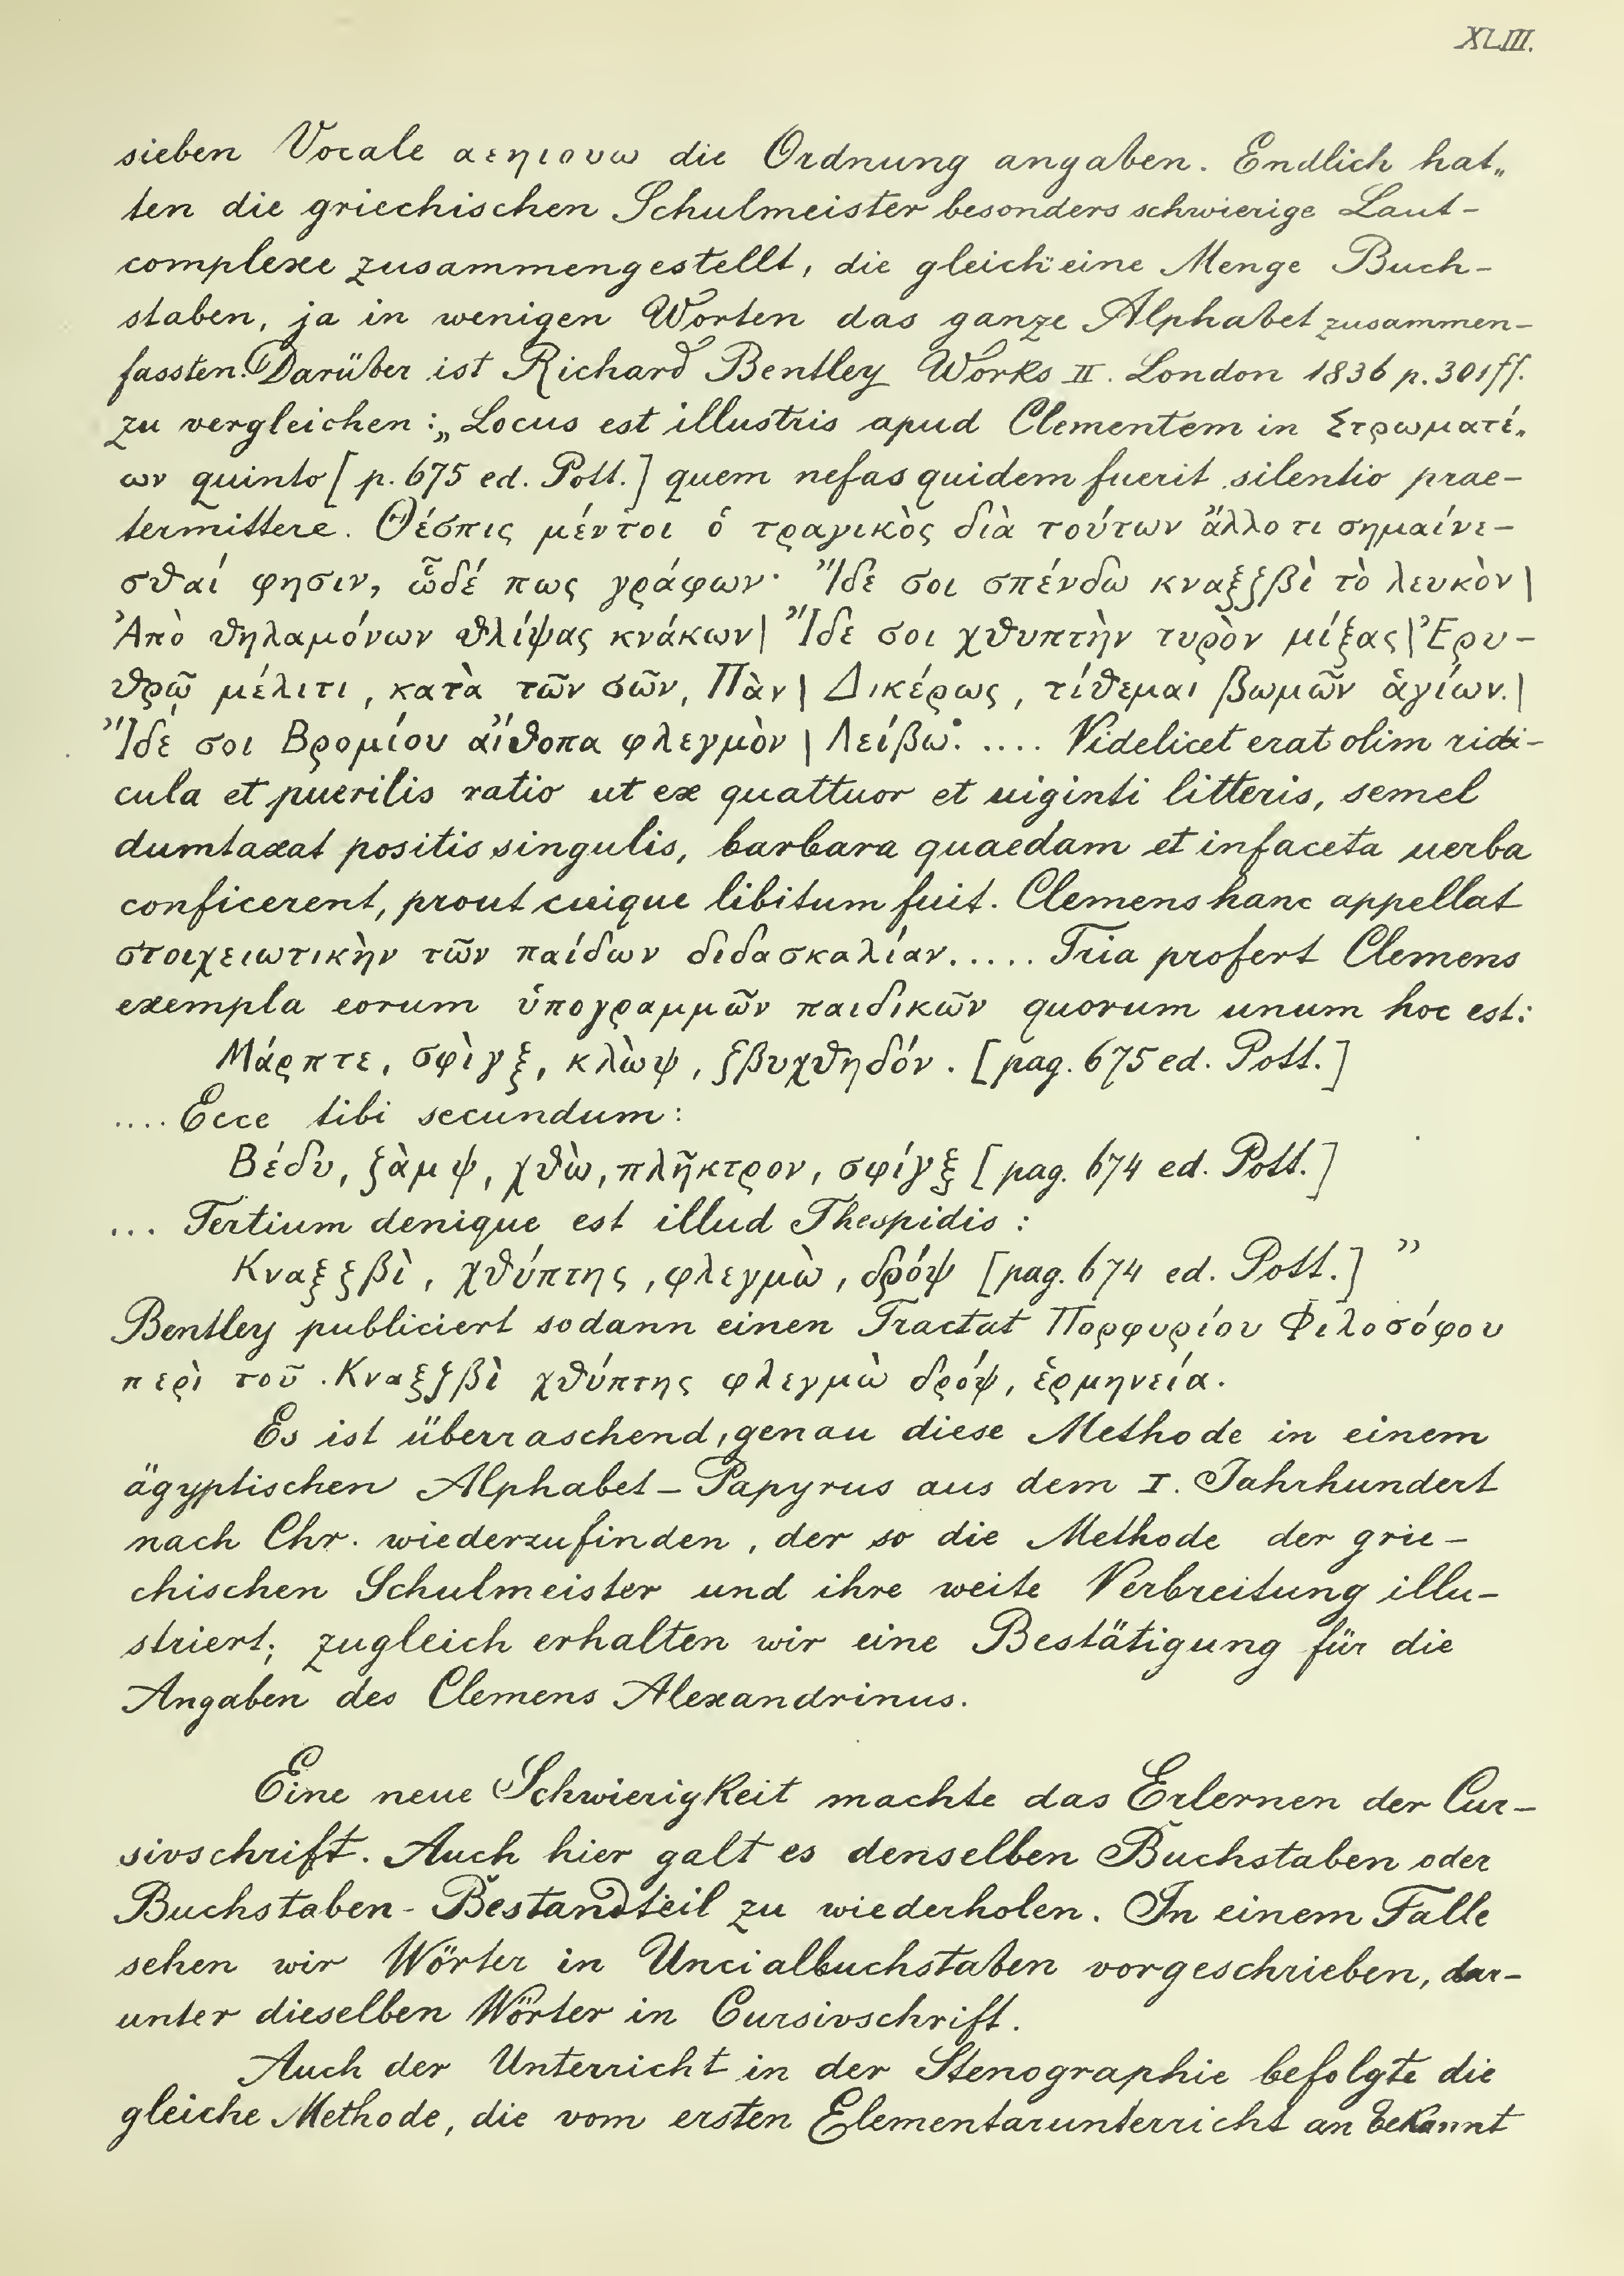 XLIII.
sieben Vocale αεηιουω die Ordnung angaben. Endlich hat„
ten die griechischen Schulmeister besonders schwierige Laut-
complexe zusammengestellt, die gleich eine Menge Buch-
staben, ja in wenigen Worten das ganze Alphabet zusammen-
fassten. Darüber ist Richard Bentley Works II. London 1836 p. 301ff.
zu vergleichen: „Locus est illustris apud Clementem in Στρωματέ„
ων quinto [p. 675 ed. Pott.] quem nefas quidem fuerit silentio prae-
termittere. Θέσπις μέντοι ὁ τραγικὸς διὰ τούτων ἄλλο τι σημαίνε-
σθαί φησιν, ὧδέ πως γράφων· Ἴδε σοι σπένδω κναξζβὶ τὸ λευκὸν|
Ἀπὸ θηλαμόνων θλίψας κνάκων| Ἴδε σοι χθυπτὴν τυρὸν μίξας| Ἐρυ-
θρῷ μέλιτι, κατὰ τῶν σῶν, Πὰν| Δικέρως, τίθεμαι βωμῶν ἁγίων.|
Ἴδέ σοι Βρομίου αἴθοπα φλεγμὸν | Λείβω. .... Videlicet erat olim ridi-
cula et puerilis ratio ut ex quattuor et uiginti litteris, semel
dumtaxat positis singulis, barbara quaedam et infaceta uerba
conficerent, prout cuique libitum fuit. Clemens hanc appellat
στοιχειωτικὴν τῶν παίδων διδασκαλίαν..... Tria profert Clemens
exempla eorum ὑπογραμμῶν παιδικῶν quorum unum hoc est:
Μάρπτε, σφὶγξ, κλὼψ, ζβυχθηδόν. [pag. 675 ed. Pott.]
.... Ecce tibi secundum:
Βέδυ, ζὰμψ, χθὼ, πλῆκτρον, σφίγξ [pag. 674 ed. Pott.]
... Tertium denique est illud Thespidis:
Κναξζβὶ, χθύπτης, φλεγμὼ, δρόψ [pag. 674 ed. Pott.] ”
Bentley publiciert sodann einen Tractat Πορφυρίου Φιλοσόφου
περὶ τοῦ Κναξζβὶ χθύπτης φλεγμὼ δρόψ, ἑρμηνεία.
Es ist überraschend, genau diese Methode in einem
ägyptischen Alphabet-Papyrus aus dem I. Jahrhundert
nach Chr. wiederzufinden, der so die Methode der grie-
chischen Schulmeister und ihre weite Verbreitung illu-
striert; zugleich erhalten wir eine Bestätigung für die
Angaben des Clemens Alexandrinus.
Eine neue Schwierigkeit machte das Erlernen der Cur-
sivschrift. Auch hier galt es denselben Buchstaben oder
Buchstaben-Bestandteil zu wiederholen. In einem Falle
sehen wir Wörter in Uncialbuchstaben vorgeschrieben, dar-
unter dieselben Wörter in Cursivschrift.
Auch der Unterricht in der Stenographie befolgte die
gleiche Methode, die vom ersten Elementarunterricht an bekannt